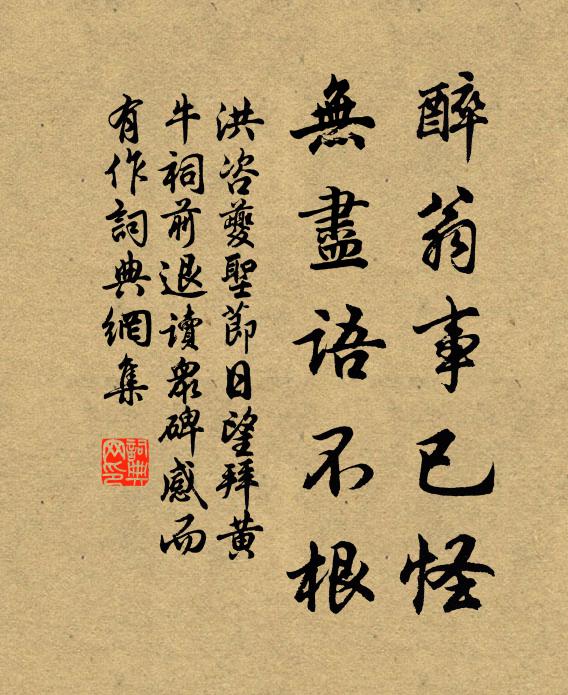 醉翁事已怪
無盡語不根
洪咨夔聖節日望拜黃
牛祠前退讀眾碑感而
有作詞典網集
詞典
网印